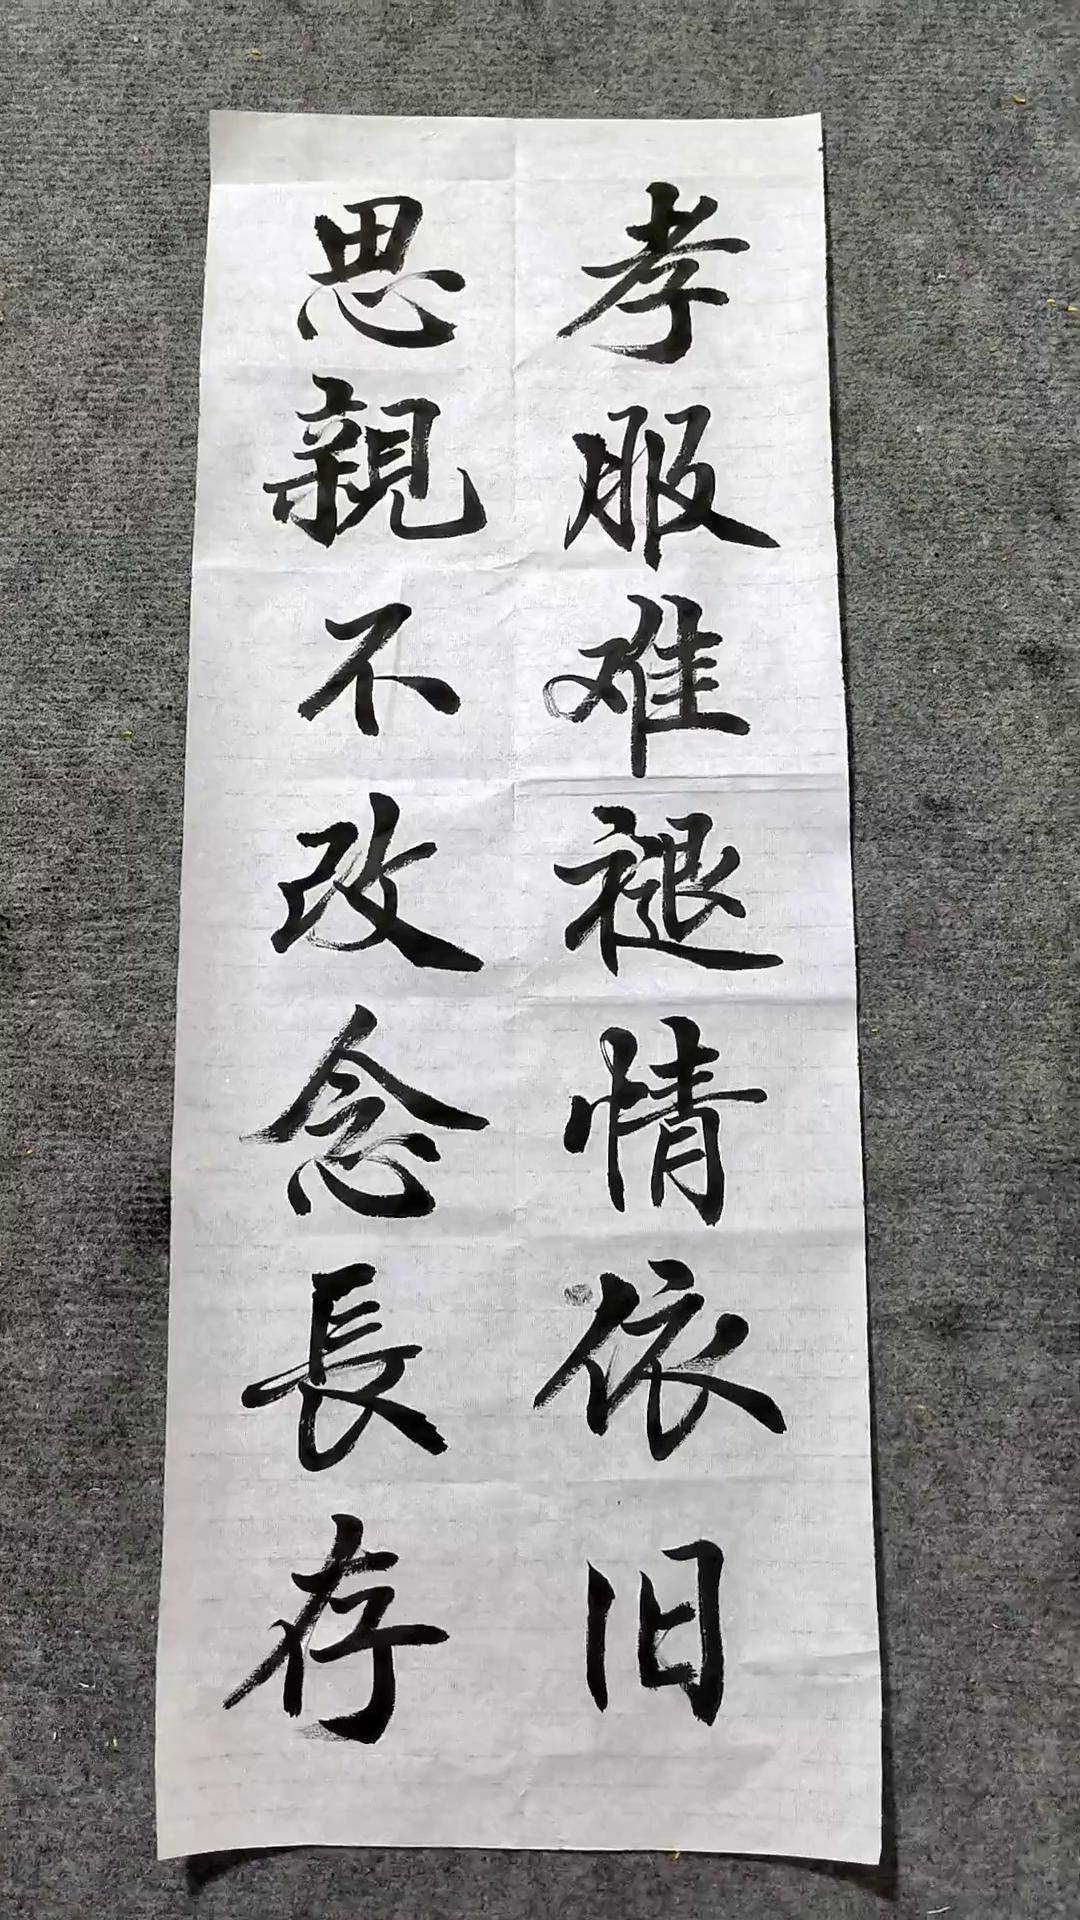 孝服难褪情依旧
思親不改念長存